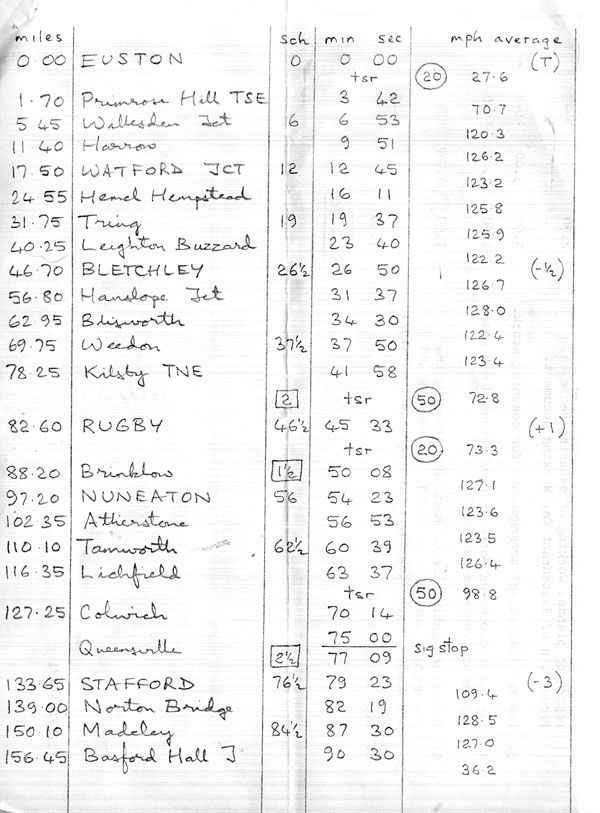 miles sch min sec mph average
0.00 EUSTON 0 0 00 (T)
tsr (20) 27.6
1.70 Primrose Hill TSE 3 42
70.7
5 45 Willesden Jct 6 6 53
120.3
11.40 Harrow 9 51
126.2
17.50 WATFORD JCT 12 12 45
123.2
24 55 Hemel Hempstead 16 11
125.8
31.75 Tring 19 19 37
125.9
40.25 Leighton Buzzard 23 40
122 2
46.70 BLETCHLEY 26½ 26 50 (-½)
126.7
56.80 Hanslope Jct 31 37
128.0
62.95 Blisworth 34 30
122.4
69.75 Weedon 37½ 37 50
123.4
78.25 Kilsby TNE 41 58
2 tsr (50) 72.8
82.60 RUGBY 46½ 45 33 (+1)
tsr (20) 73.3
88.20 Brinklow 1½ 50 08
127.1
97.20 NUNEATON 56 54 23
123.6
102 35 Atherstone 56 53
123.5
110.10 Tamworth 62½ 60 39
126.4
116.35 Lichfield 63 37
tsr (50) 98.8
127.25 Colwich 70 14
75 00
Queensville 2½ 77 09 sig stop
133.65 STAFFORD 76½ 79 23 (-3)
109.4
139.00 Norton Bridge 82 19
128.5
150.10 Madeley 84½ 87 30
127.0
156.45 Basford Hall J 90 30
36.2